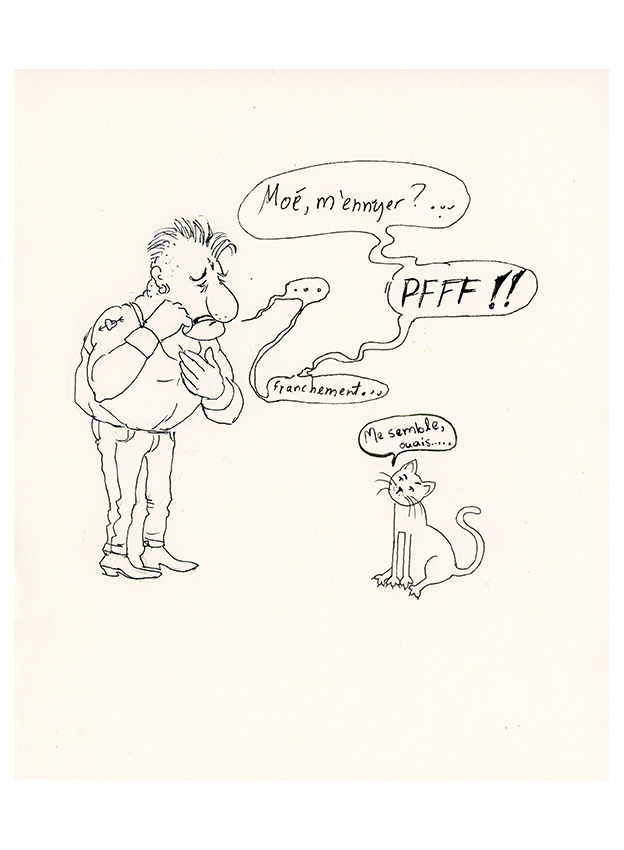 Moé, m'ennuyer?...
PFFF !!
franchement...
...
Me semble,
ouais.....